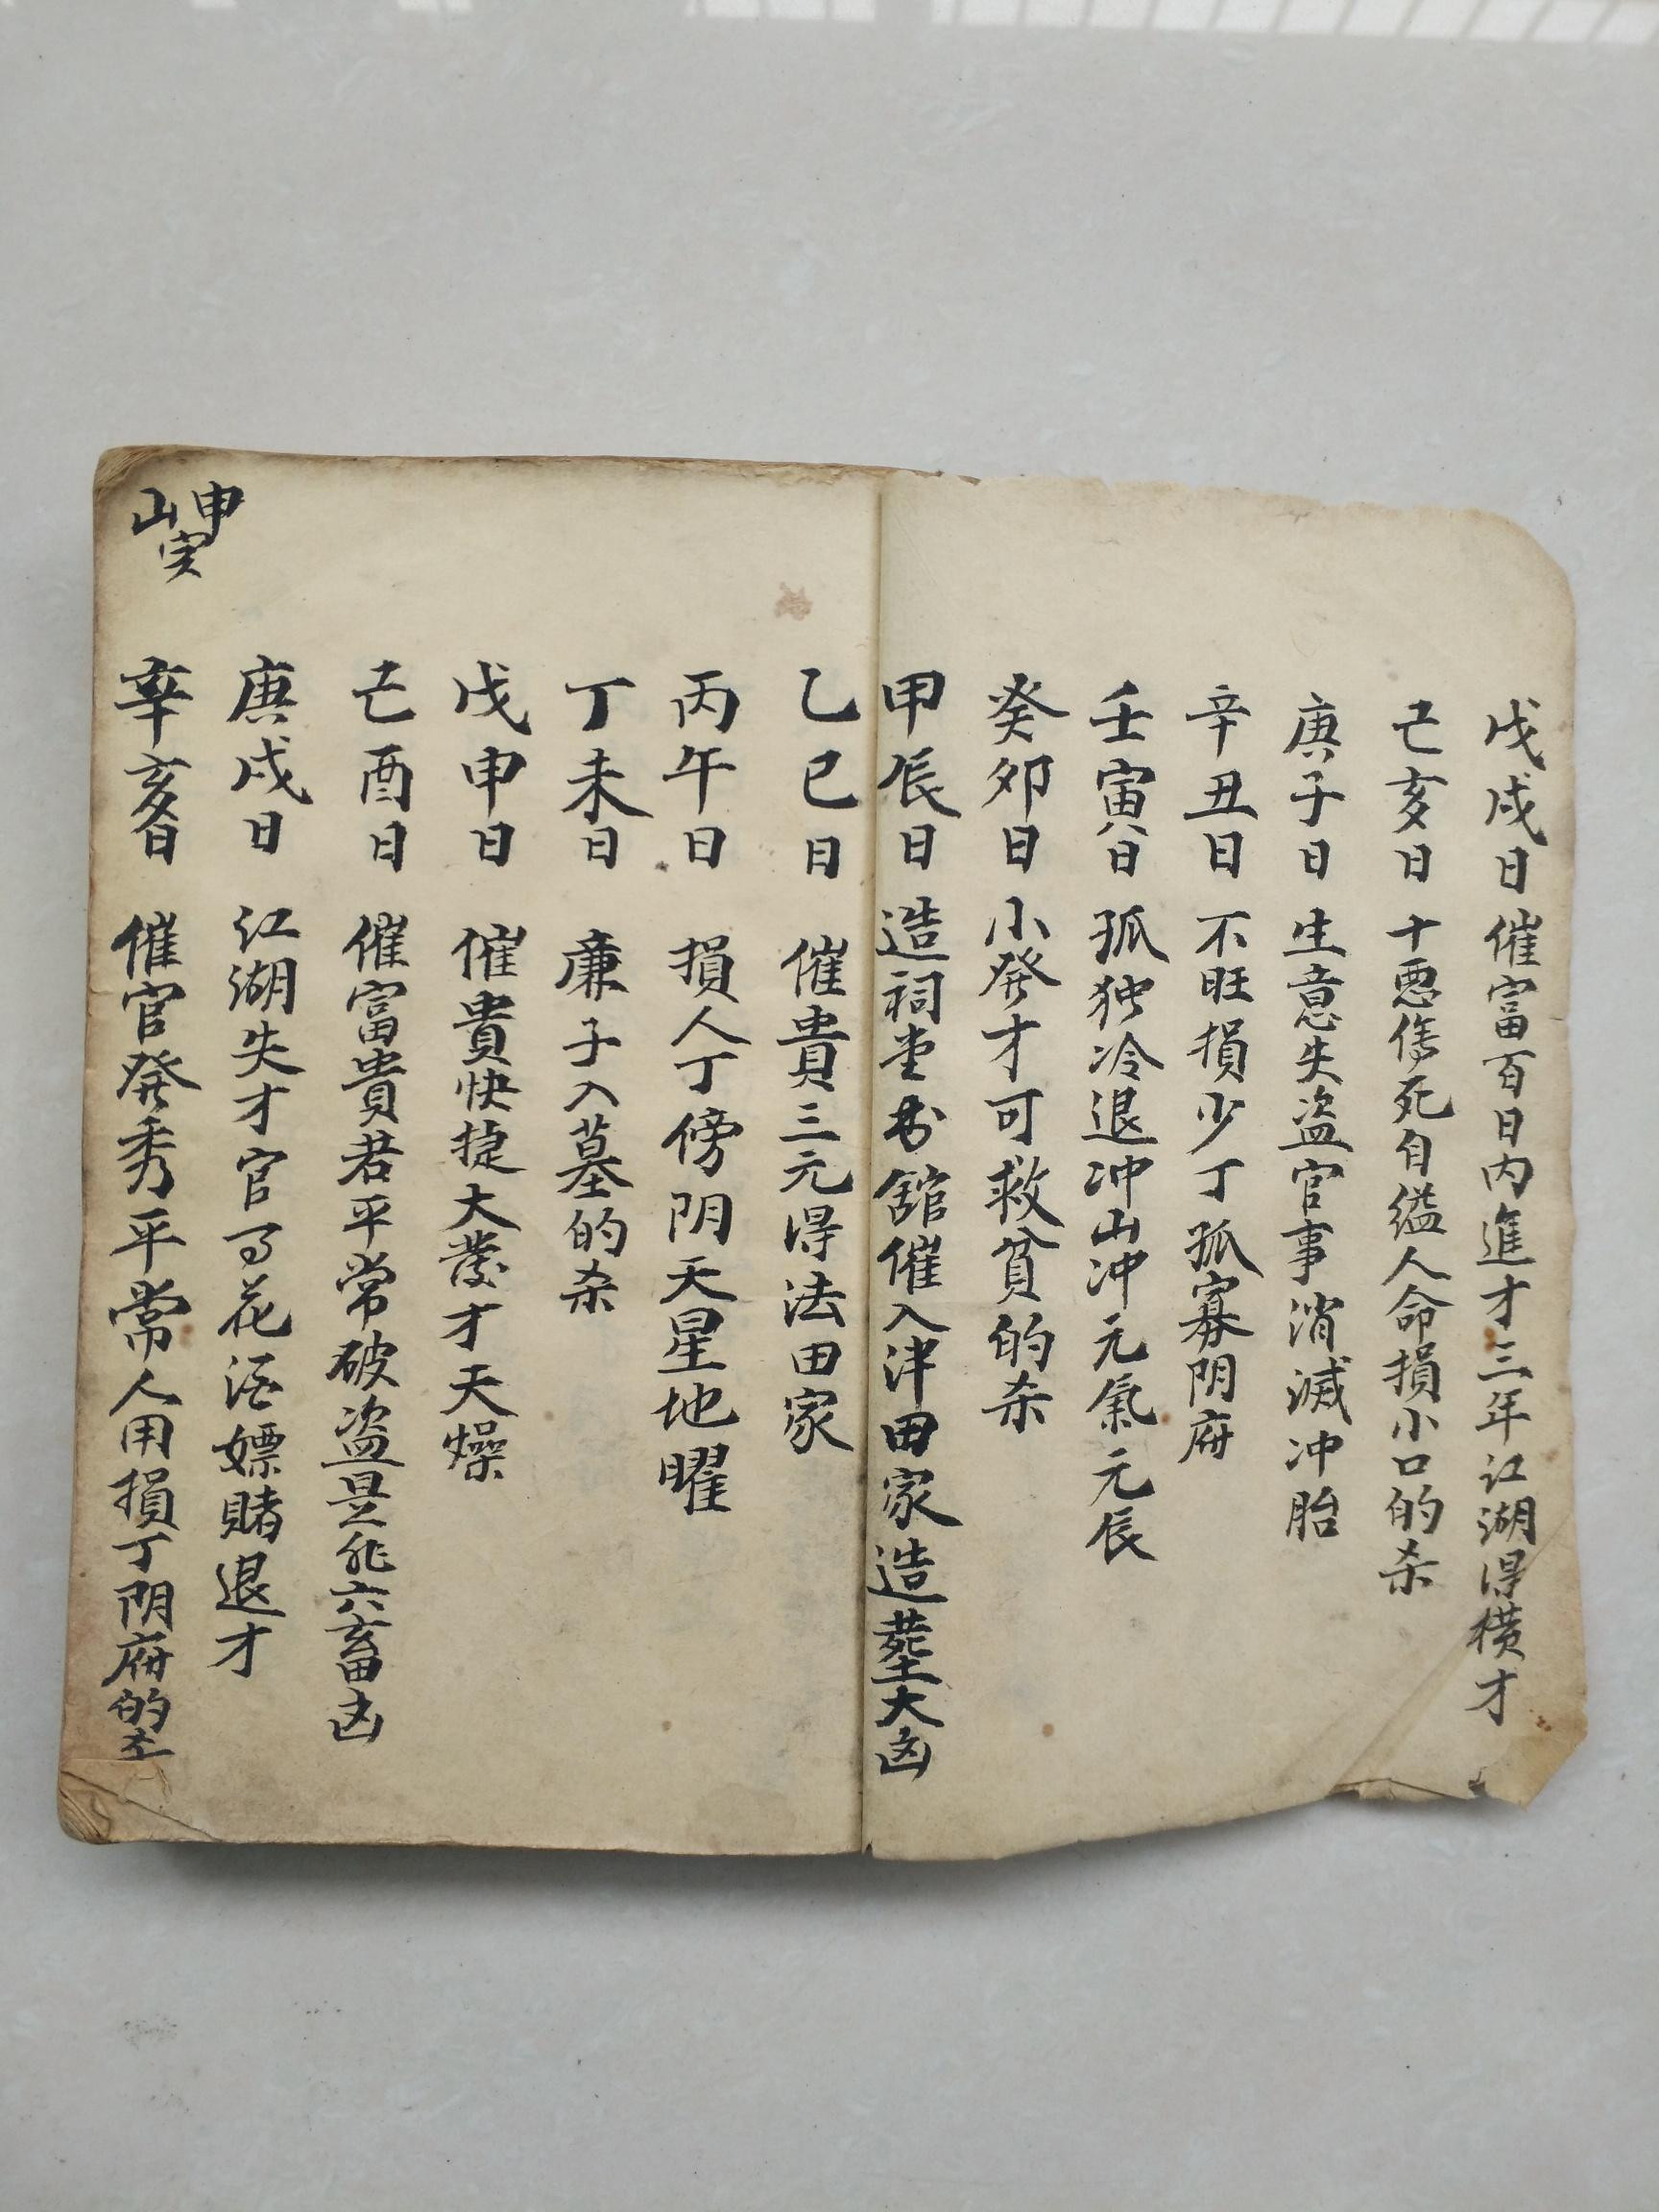 戊戌日 催富百日内進才三年江湖得横才
己亥日 十悪傷死自缢人命損小口的杀
庚子日 生意失盗官事消滅冲胎
辛丑日 不旺損少丁孤寡阴府
壬寅日 孤独冷退冲山冲元氣元辰
癸卯日 小発才可救貧的杀
甲辰日 造祠堂书舘催入津田家造塟大凶
乙巳日 催貴三元得法田家
丙午日 損人丁傍阴天星地曜
丁未日 廉子入墓的杀
戊申日 催貴快捷大發才天燥
己酉日 催富貴若平常破盗是非六畜凶
庚戌日 江湖失才官司花酒嫖賭退才
辛亥日 催官発秀平常人用損丁阴府的杀
申山寅